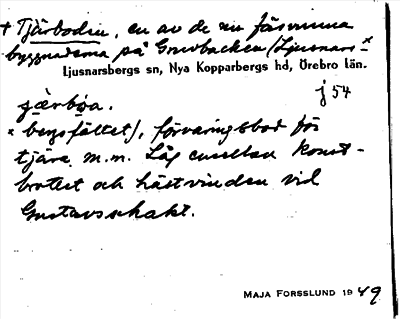 + Tjärboden, en av de nu försvunna
byggnaderna på Gruvbacken (Ljusnars- x
Ljusnarsbergs sn, Nya Kopparbergs hd, Örebro län.
j 54
x bergsfältet), förvaringsbod för
tjära m.m. Låg emellan konst-
brottet och hästvinden vid
Gustavsschakt.
MAJA FORSSLUND 1949